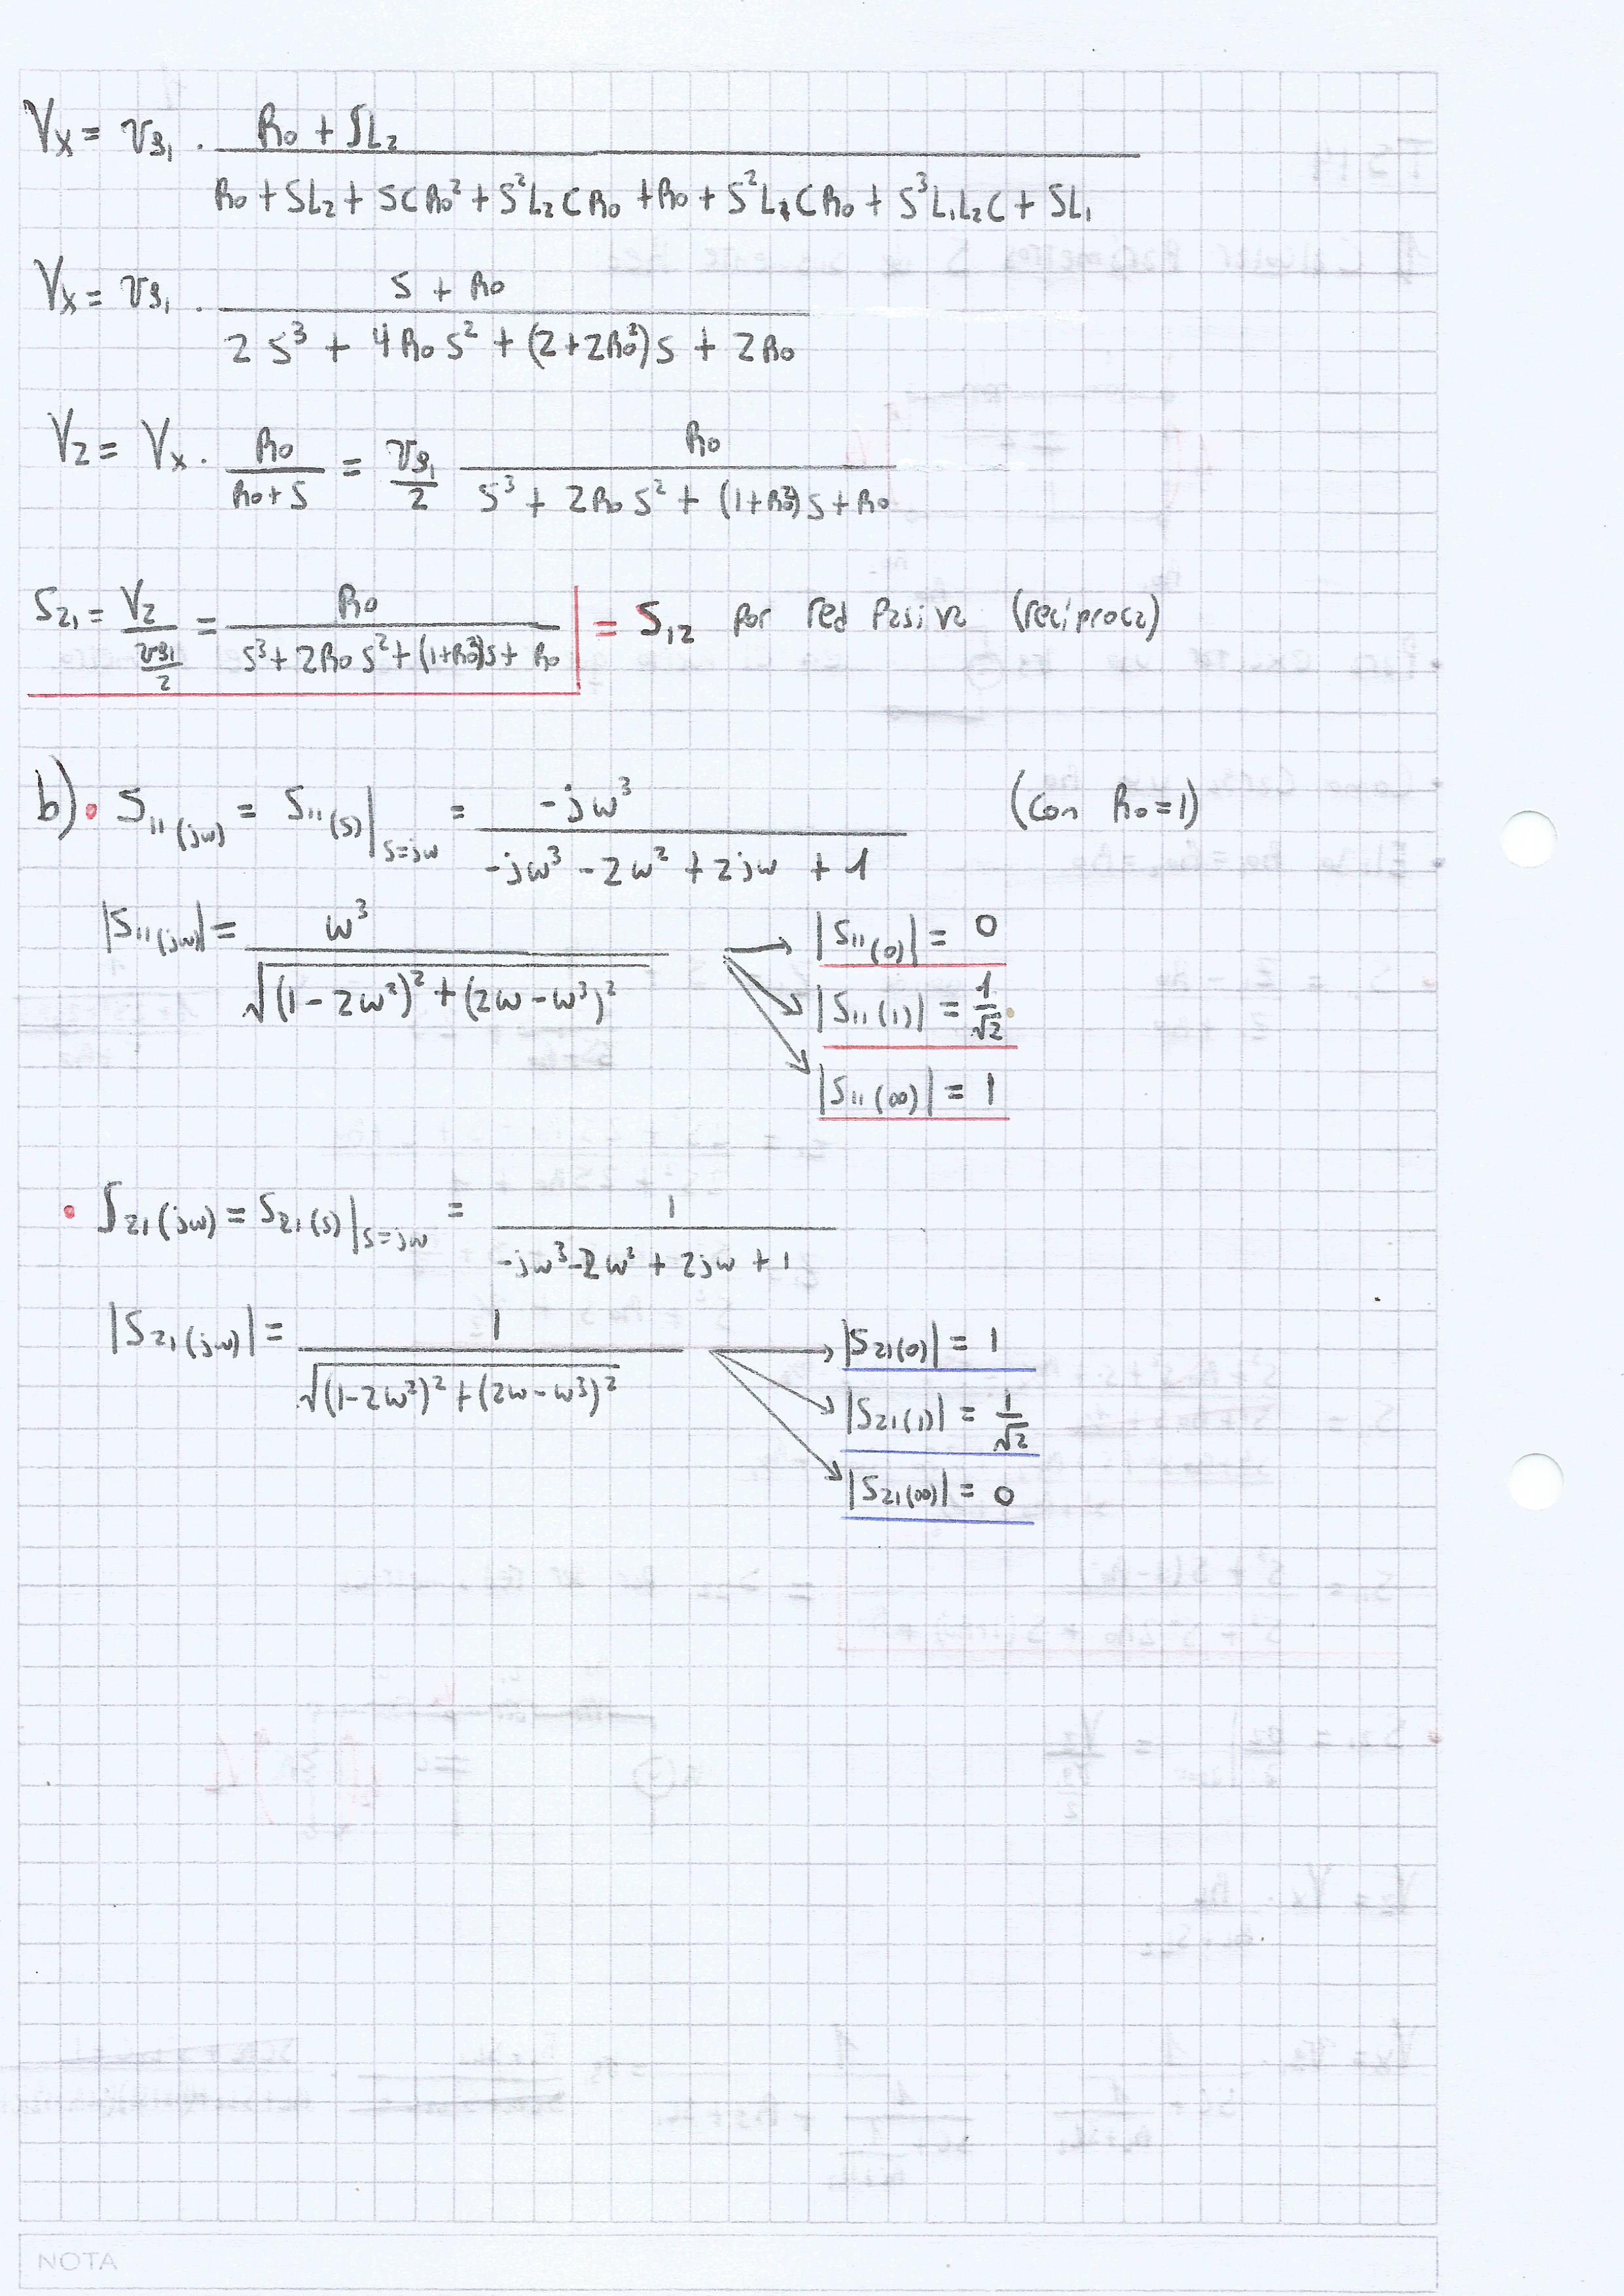 Vx = vg1 . (R0 + SL2) / (R0 + SL2 + SCR0² + S²L2CR0 + R0 + S²L1CR0 + S³L1L2C + SL1)
Vx = vg1 . (S + R0) / (2S³ + 4R0S² + (2+2R0²)S + 2R0)
V2 = Vx . R0 / (R0+S) = vg1/2 R0 / (S³ + 2R0S² + (1+R0²)S + R0)
S21 = V2 / (vg1/2) = R0 / (S³ + 2R0S² + (1+R0²)S + R0) = S12 por red pasiva (reciproca)
b) • S11(jω) = S11(s)|s=jω = -jω³ / (-jω³ - 2ω² + 2jω + 1) (con R0=1)
|S11(jω)| = ω³ / √((1-2ω²)² + (2ω-ω³)²)
|S11(0)| = 0
|S11(1)| = 1/√2
|S11(∞)| = 1
• S21(jω) = S21(s)|s=jω = 1 / (-jω³-2ω² + 2jω + 1)
|S21(jω)| = 1 / √((1-2ω²)² + (2ω-ω³)²)
|S21(0)| = 1
|S21(1)| = 1/√2
|S21(∞)| = 0
NOTA